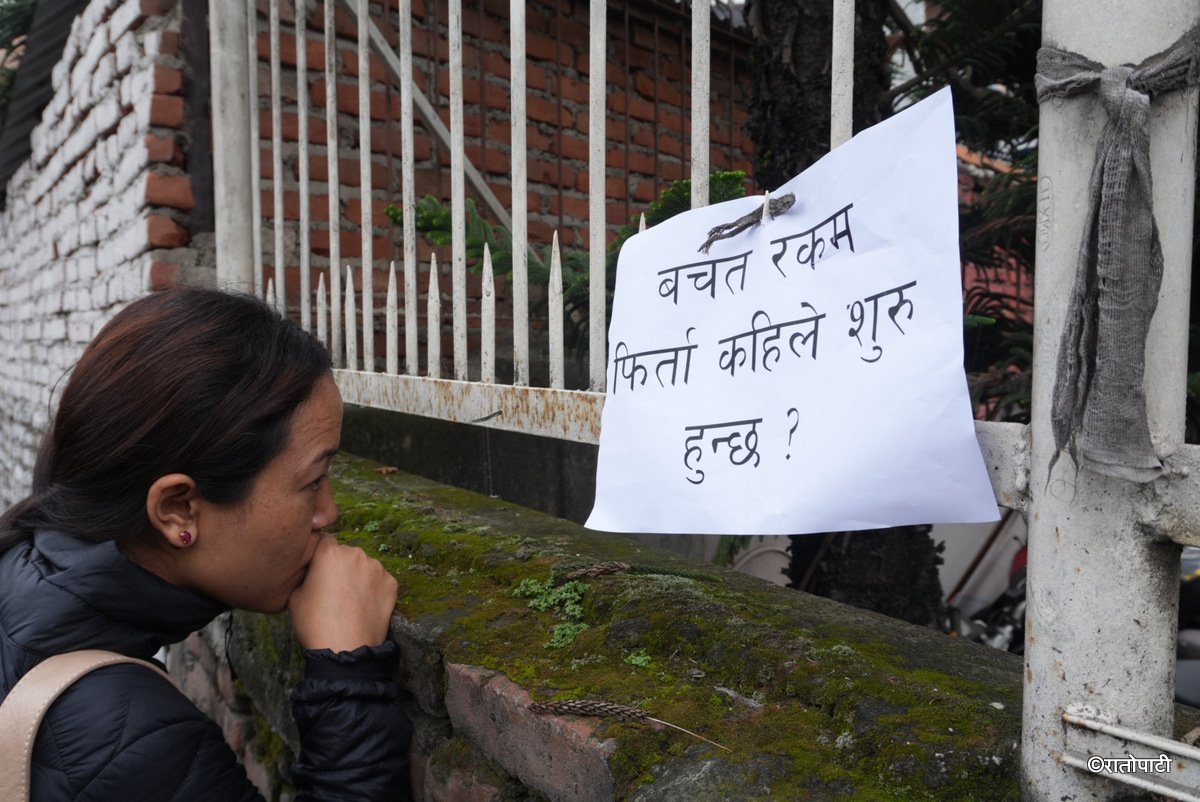 बचत रकम
फिर्ता कहिले शुरु
हुन्छ ?
©रातोपाटी